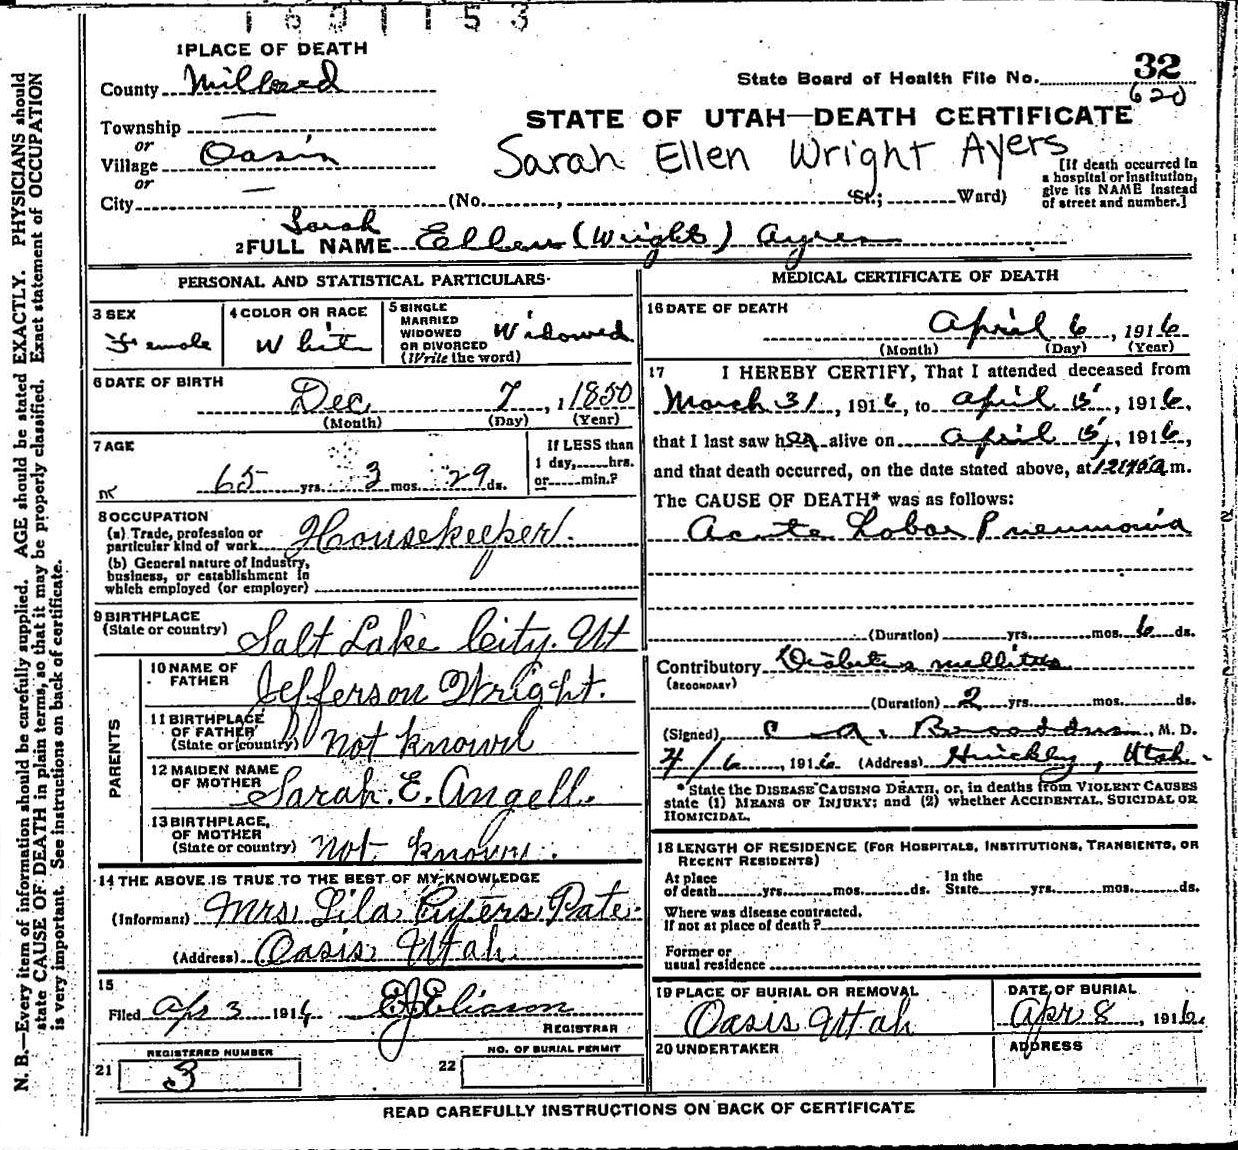 1601153
1 PLACE OF DEATH
County Millard
State Board of Health File No. 32
620
STATE OF UTAH—DEATH CERTIFICATE
Township
or
Village Oasis
or
City (No. , St.; Ward)
Sarah Ellen Wright Ayers
[If death occurred in
a hospital or institution,
give its NAME instead
of street and number.]
Sarah
2 FULL NAME Ellen (Wright) Ayres
PERSONAL AND STATISTICAL PARTICULARS
3 SEX
Female
4 COLOR OR RACE
White
5 SINGLE
MARRIED
WIDOWED
OR DIVORCED
(Write the word)
Widowed
6 DATE OF BIRTH
Dec 7, 1850
(Month) (Day) (Year)
7 AGE
65 yrs. 3 mos. 29 ds.
If LESS than
1 day, hrs.
or min.?
8 OCCUPATION
(a) Trade, profession or
particular kind of work Housekeeper.
(b) General nature of Industry,
business, or establishment in
which employed (or employer)
9 BIRTHPLACE
(State or country) Salt Lake City. Ut
PARENTS
10 NAME OF
FATHER Jefferson Wright.
11 BIRTHPLACE
OF FATHER
(State or country) Not known
12 MAIDEN NAME
OF MOTHER Sarah. E. Angell.
13 BIRTHPLACE
OF MOTHER
(State or country) Not known.
14 THE ABOVE IS TRUE TO THE BEST OF MY KNOWLEDGE
(Informant) Mrs Lila Ayers Pate.
(Address) Oasis Utah.
15
Filed Apr 3 1916 EJEliason
REGISTRAR
21 REGISTERED NUMBER
3
22 NO. OF BURIAL PERMIT
MEDICAL CERTIFICATE OF DEATH
16 DATE OF DEATH
April 6, 1916
(Month) (Day) (Year)
17 I HEREBY CERTIFY, That I attended deceased from
March 31, 1916, to April 5, 1916,
that I last saw her alive on April 5, 1916,
and that death occurred, on the date stated above, at 12:15 a m.
The CAUSE OF DEATH* was as follows:
Acute Lobar Pneumonia
(Duration) yrs. mos. 6 ds.
Contributory Diabetes mellitus
(SECONDARY)
(Duration) 2 yrs. mos. ds.
(Signed) C. A. Broaddus, M. D.
4/6, 1916 (Address) Hinckley, Utah.
* State the DISEASE CAUSING DEATH, or, in deaths from VIOLENT CAUSES
state (1) MEANS OF INJURY; and (2) whether ACCIDENTAL, SUICIDAL OR
HOMICIDAL.
18 LENGTH OF RESIDENCE (FOR HOSPITALS, INSTITUTIONS, TRANSIENTS, OR
RECENT RESIDENTS)
At place In the
of death yrs. mos. ds. State yrs. mos. ds.
Where was disease contracted,
If not at place of death?
Former or
usual residence
19 PLACE OF BURIAL OR REMOVAL
Oasis Utah
DATE OF BURIAL
Apr 8, 1916.
20 UNDERTAKER
ADDRESS
READ CAREFULLY INSTRUCTIONS ON BACK OF CERTIFICATE
N. B.—Every item of information should be carefully supplied. AGE should be stated EXACTLY. PHYSICIANS should
state CAUSE OF DEATH in plain terms, so that it may be properly classified. Exact statement of OCCUPATION
is very important. See instructions on back of certificate.